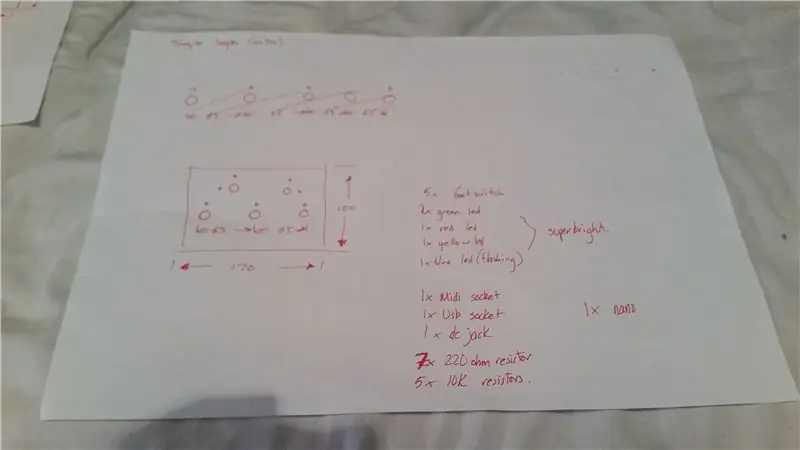 Simple looper control
65 65 65 65
65 65
100
170
5x footswitch
2x green led
1x red led
1x yellow led
1x blue led (flashing)
superbright.
1x Midi socket
1x Usb socket
1x nano
1x dc jack
7x 220 ohm resistor
5x 10K resistors.